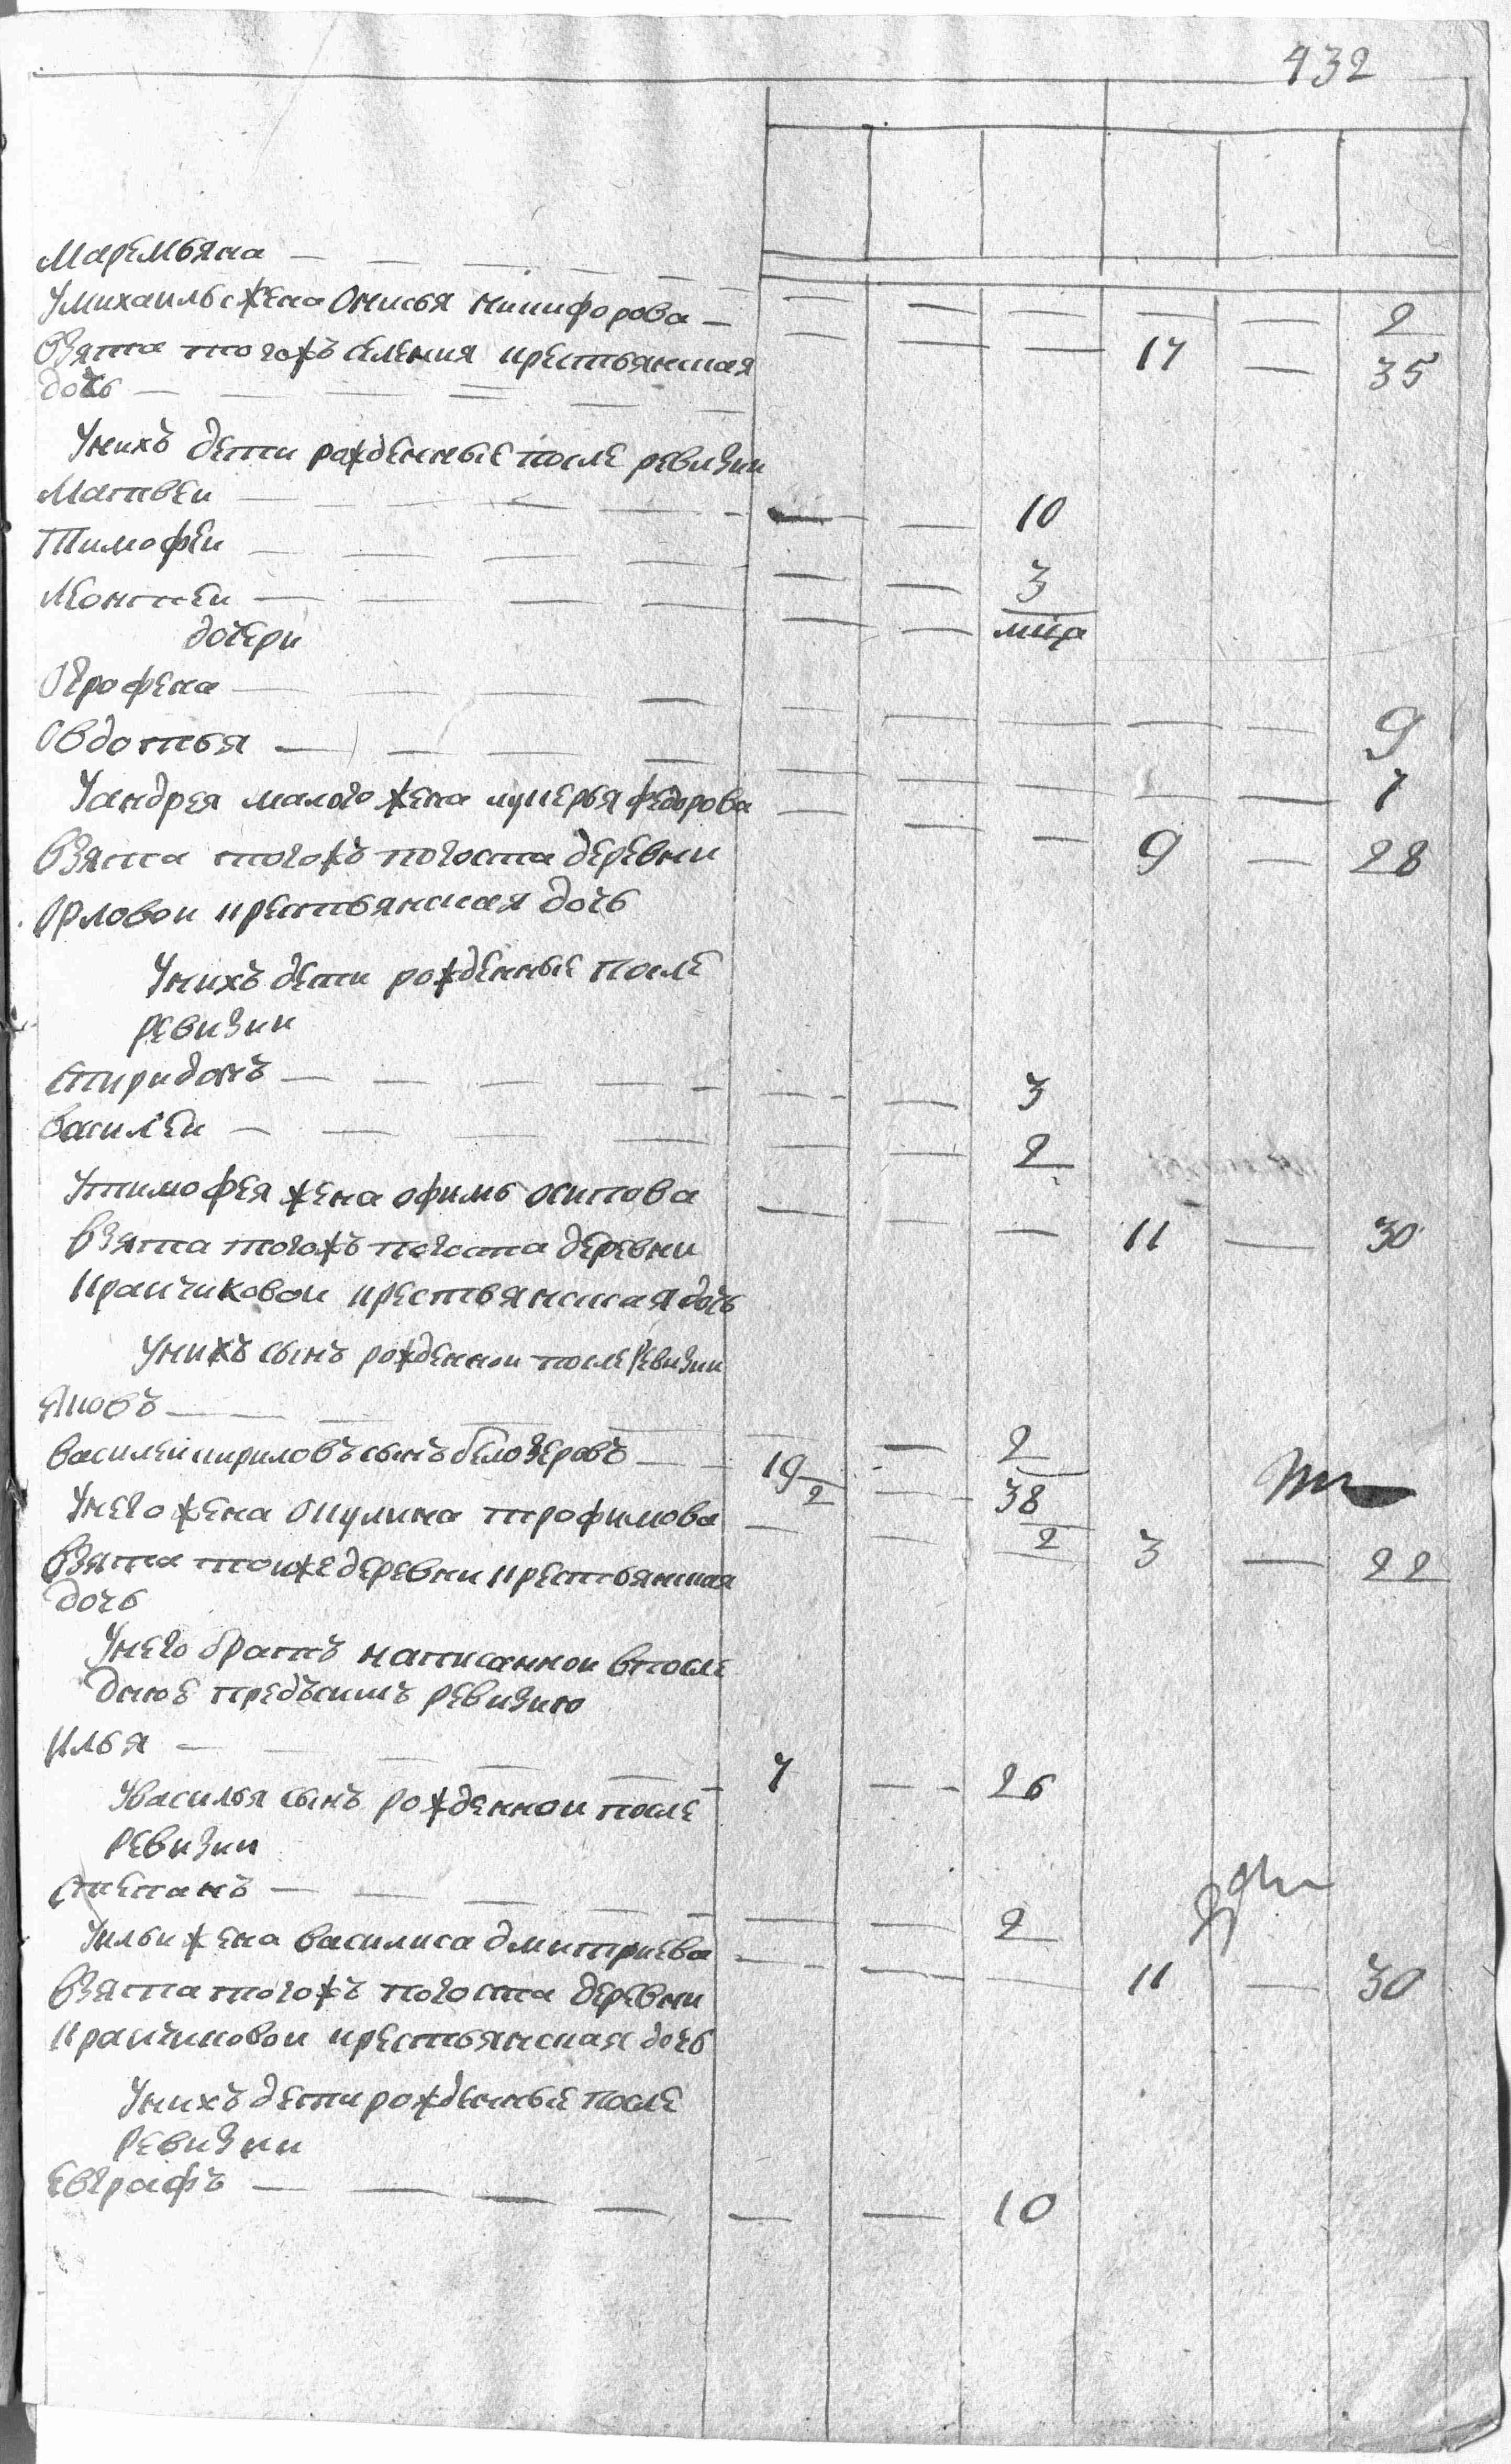 432
Маремьяна — — — — — — — — — — 2
Умихаилы жена Онисья никифорова — — — — 17 — 35
Взята тогожъ селения крестьянская
дочь — — — — — —
Унихъ дети рожденные после ревизии
Матвеи — — — — — — — 10
Тимофеи — — — — — — 3
Леонтеи — — — — — — мца
дочери
Огрофена — — — — — — — — — 9
Овдотья — — — — — — — — — 7
Уандрея малого жена лукерья федорова — — — 9 — 28
Взята тогожъ погоста деревни
Орловои крестьянская дочь
Унихъ дети рожденные после
ревизии
Спиридонъ — — — — — — — 3
Василеи — — — — — — 2
Утимофея жена офимь осипова — — — 11 — 30
Взята тогожъ погоста деревни
Краичиковои крестьянская дочь
Унихъ сынъ рожденнои после ревизии
Яковъ — — — — — — 2
Василеи кириловъ сынъ белозеровъ — — 19/2 — 38/2
Унего жена окулина трофимова — — — 3 — 22
Взята тоиже деревни крестьянская
дочь
Унего братъ написаннои впосле
днюю предъсимъ ревизию
Илья — — — — — 7 — 26
Увасилья сынъ рожденнои после
ревизии
Степанъ — — — — — — 2
Уильи жена василиса дмитриева — — — 11 — 30
Взята тогожъ погоста деревни
Краичиковои крестьянская дочь
Унихъ дети рожденные после
ревизии
Евграфъ — — — — — — 10